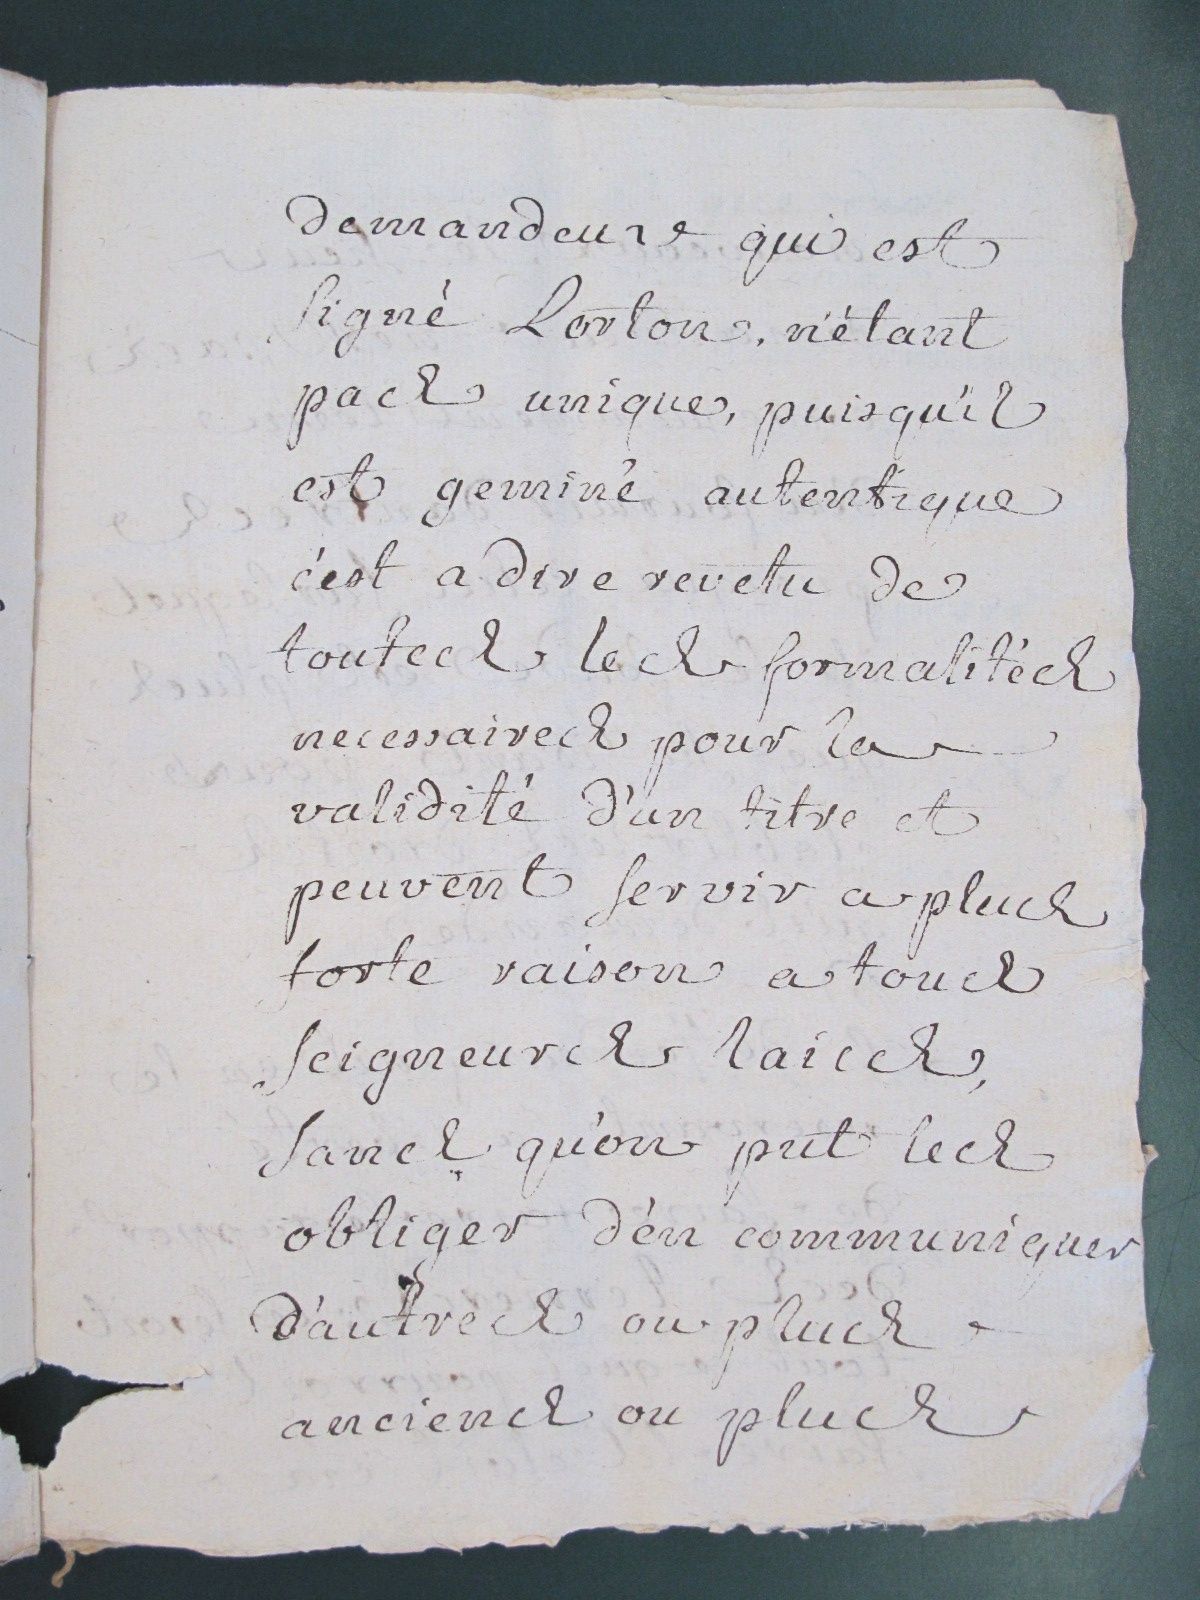 demandeurs qui est
signé Lorton, n'étant
pas unique, puisqu'il
est geminé autentique
c'est a dire revetu de
toutes les formalités
necessaires pour la
validité d'un titre et
peuvent servir a plus
forte raison a tous
seigneurs laics,
sans qu'on put les
obliger d'en communiquer
d'autres ou plus
anciens ou plus